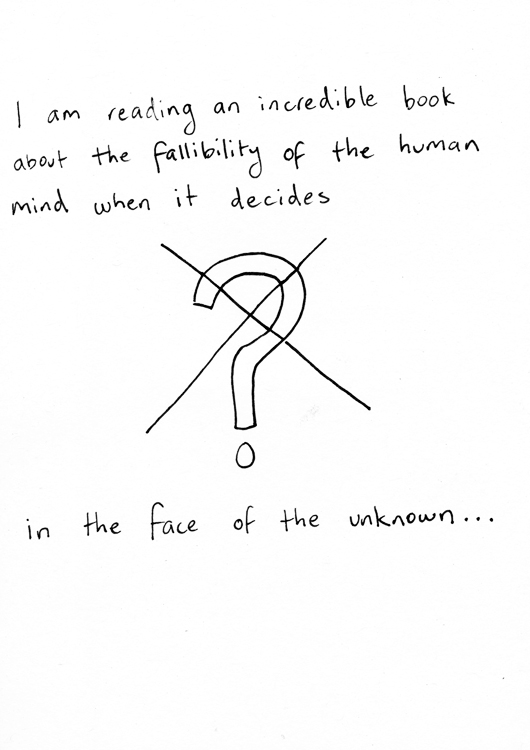 I am reading an incredible book
about the fallibility of the human
mind when it decides
?
in the face of the unknown...